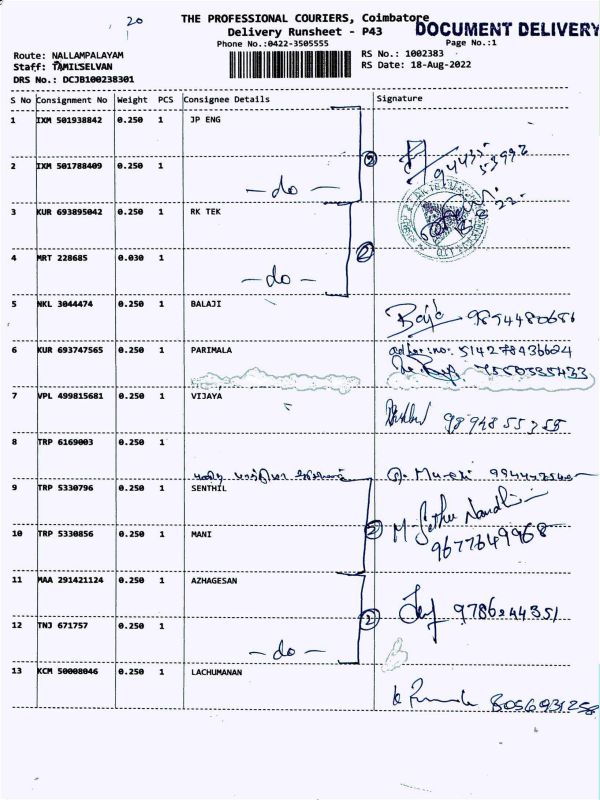 20
THE PROFESSIONAL COURIERS, Coimbatore
DOCUMENT DELIVERY
Delivery Runsheet - P43
Phone No.:0422-3505555
Page No.:1
Route: NALLAMPALAYAM
RS No.: 1002383
Staff: TAMILSELVAN
RS Date: 18-Aug-2022
DRS No.: DCJB100238301
S No Consignment No Weight PCS Consignee Details Signature
1 IXM 501938842 0.250 1 JP ENG
2 IXM 501788409 0.250 1
-do-
2
94435 53992
3 KUR 693895042 0.250 1 RK TEK
4 MRT 228685 0.030 1
-do-
2
5 NKL 3044474 0.250 1 BALAJI
Baja 9894480686
6 KUR 693747565 0.250 1 PARIMALA
adhar:no: 514278436624
7550335433
7 VPL 499815681 0.250 1 VIJAYA
98948 55355
8 TRP 6169003 0.250 1
9 TRP 5330796 0.250 1 SENTHIL
10 TRP 5330856 0.250 1 MANI
2
M. Sethu Nandhini
9677649968
11 MAA 291421124 0.250 1 AZHAGESAN
12 TNJ 671757 0.250 1
-do-
2
9786244351
13 KCM 50008046 0.250 1 LACHUMANAN
8056931258